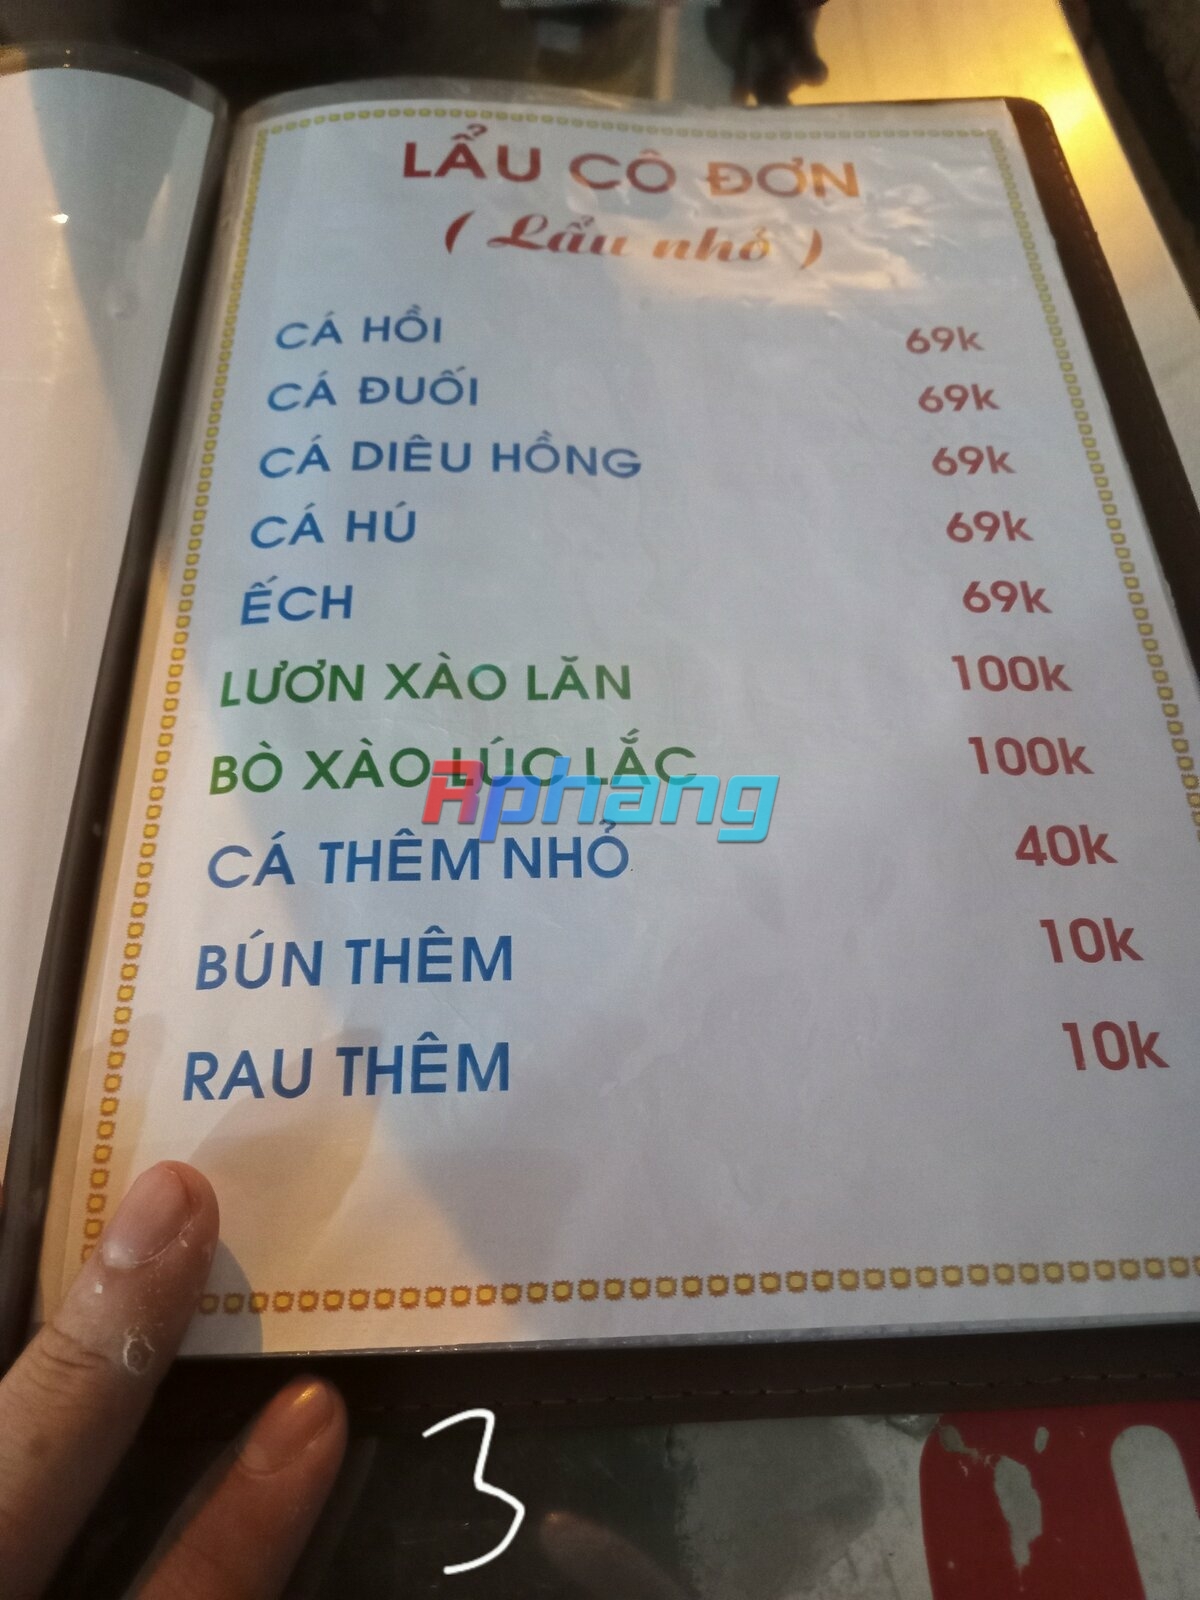 LẨU CÔ ĐƠN
( Lẩu nhỏ )
CÁ HỒI 69k
CÁ ĐUỐI 69k
CÁ DIÊU HỒNG 69k
CÁ HÚ 69k
ẾCH 69k
LƯƠN XÀO LĂN 100k
BÒ XÀO LÚC LẮC 100k
Rphang
CÁ THÊM NHỎ 40k
BÚN THÊM 10k
RAU THÊM 10k
3